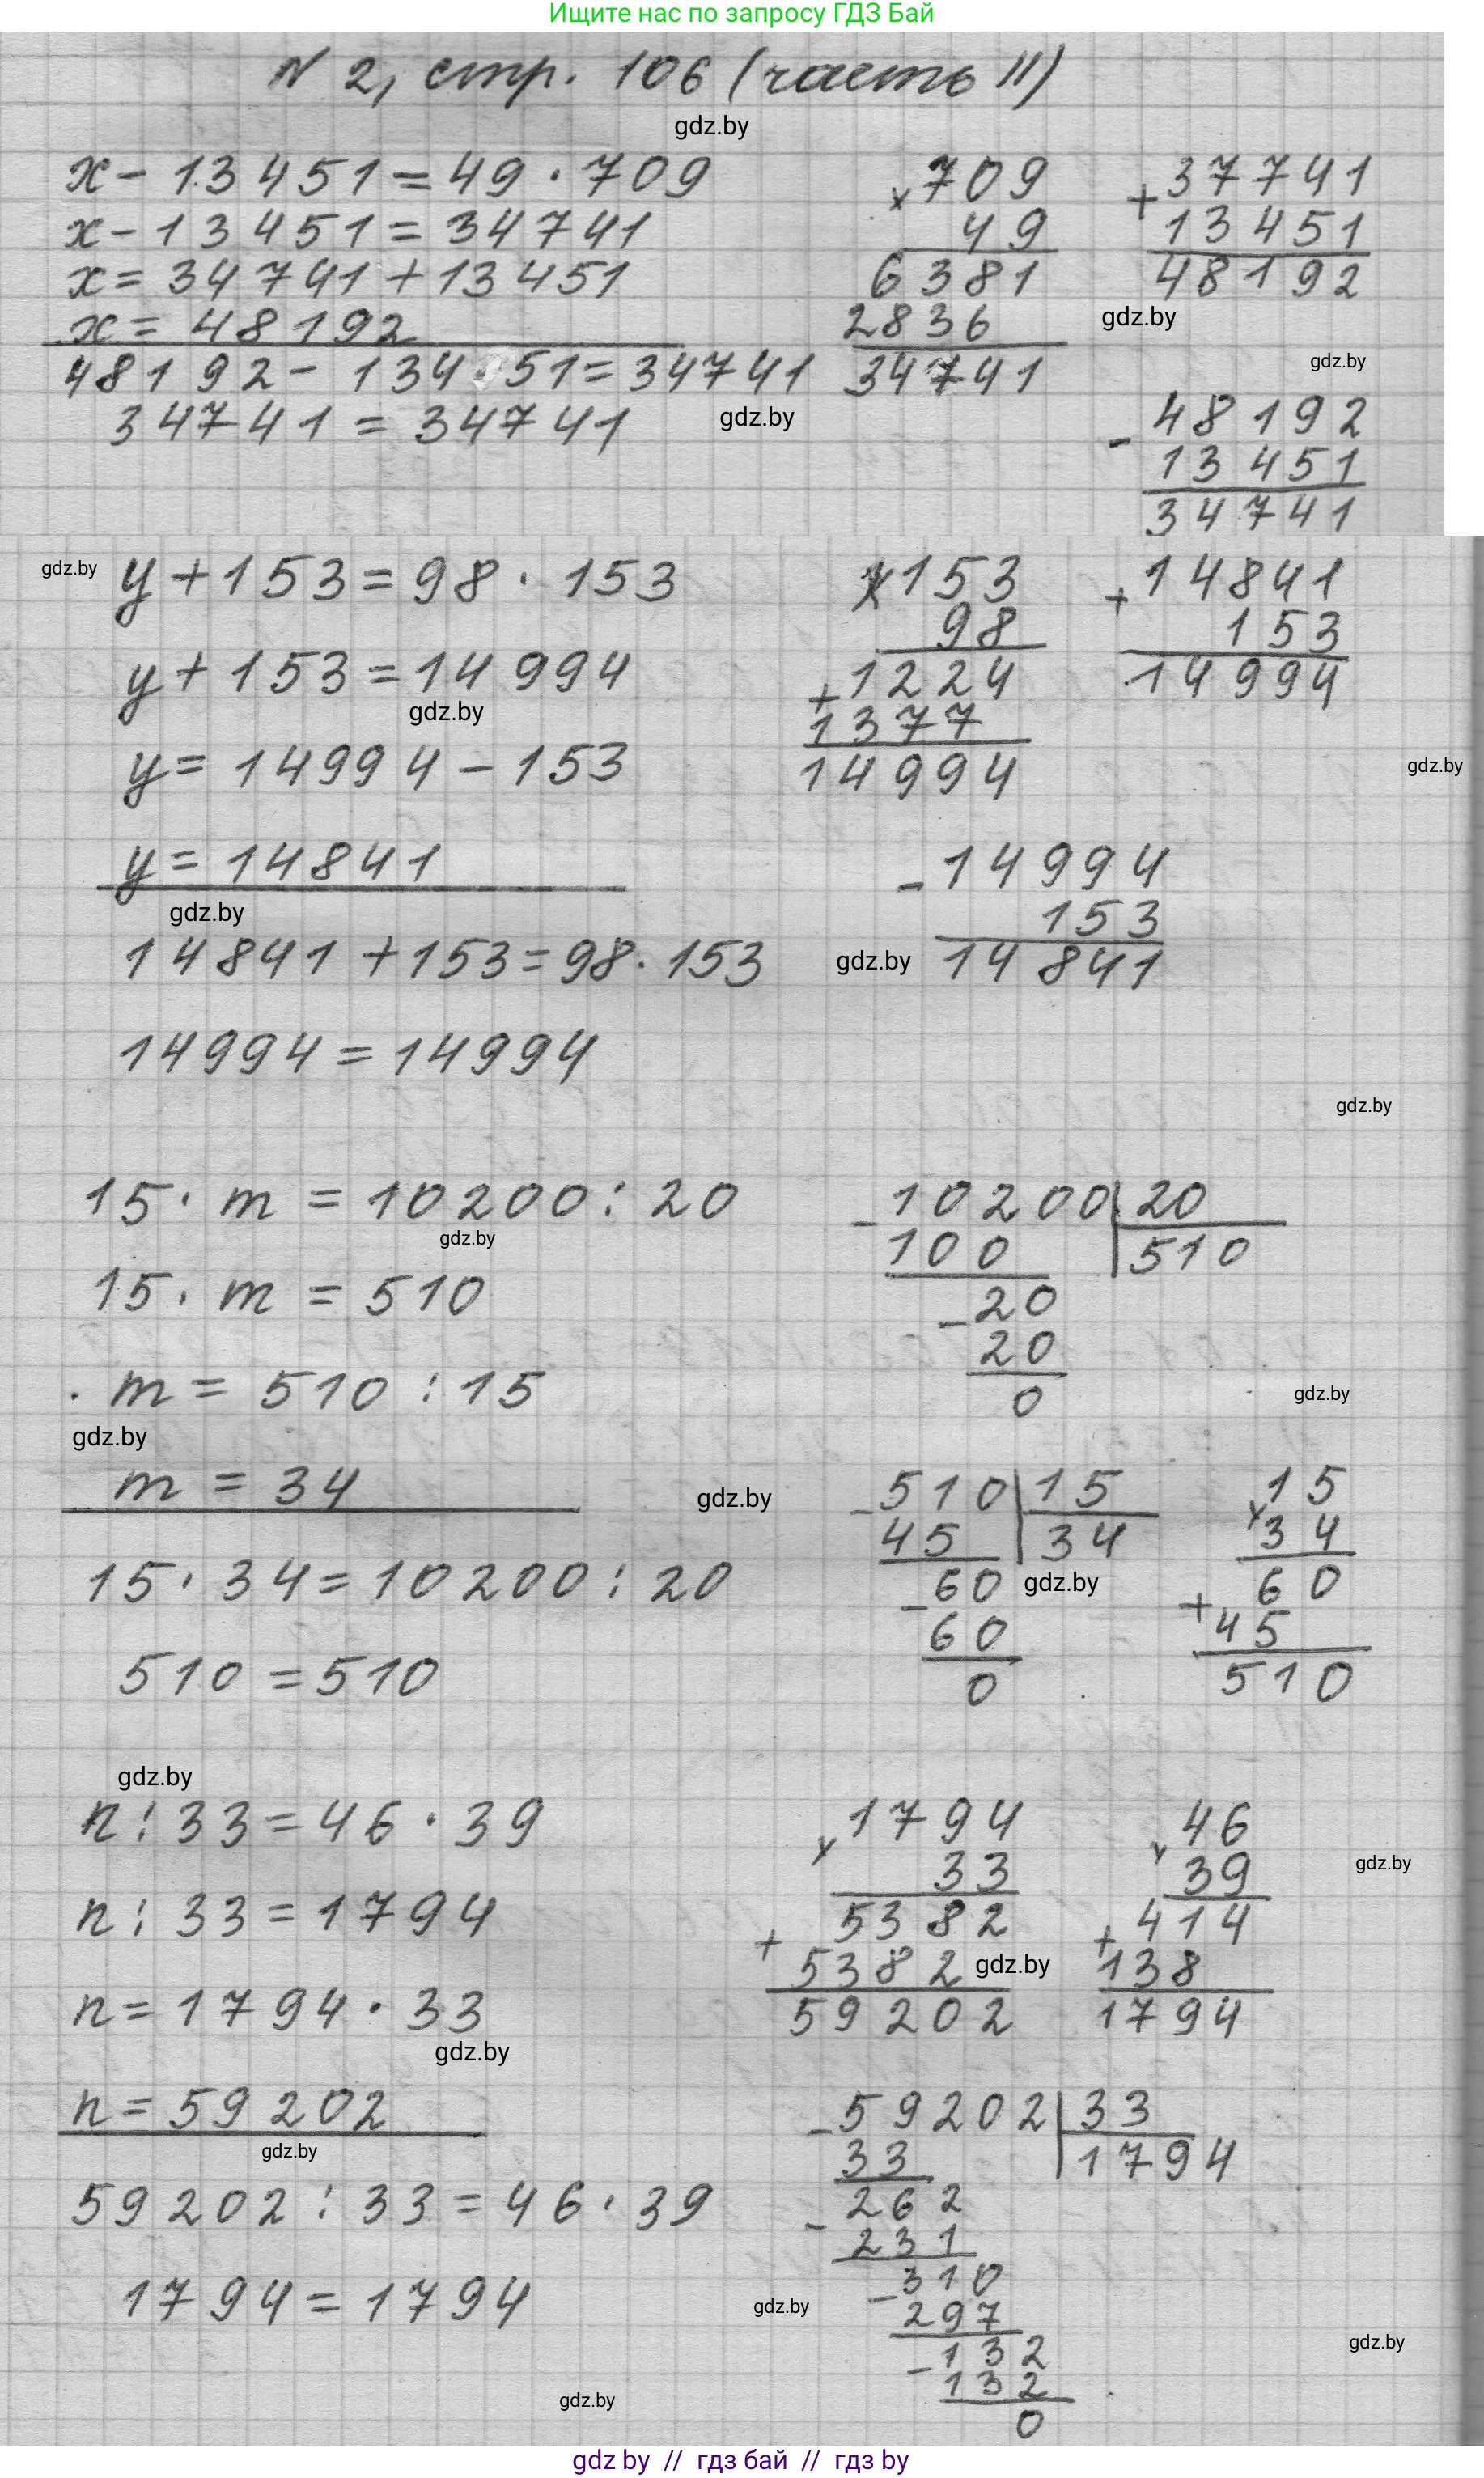 Ищите нас по запросу ГДЗ Бай
N 2, стр. 106 (часть II)
gdz.by
x - 13451 = 49 · 709
x - 13451 = 34741
x = 34741 + 13451
x = 48192
48192 - 134 51 = 34741
34741 = 34741
gdz.by
x 709
49
6381
2836
34741
+ 37741
13451
48192
gdz.by
gdz.by
- 48192
13451
34741
gdz.by
y + 153 = 98 · 153
y + 153 = 14994
gdz.by
y = 14994 - 153
y = 14841
gdz.by
14841 + 153 = 98 · 153
14994 = 14994
x 153
98
+ 1224
1377
14994
+ 14841
153
14994
gdz.by
- 14994
153
14841
gdz.by
gdz.by
15 · m = 10200 : 20
gdz.by
15 · m = 510
m = 510 : 15
gdz.by
m = 34
15 · 34 = 10200 : 20
510 = 510
- 10200 | 20
100 | 510
- 20
20
0
gdz.by
gdz.by
- 510 | 15
45 | 34
- 60
60
0
gdz.by
x 15
34
+ 60
45
510
gdz.by
n : 33 = 46 · 39
n : 33 = 1794
n = 1794 · 33
gdz.by
n = 59202
gdz.by
59202 : 33 = 46 · 39
1794 = 1794
x 1794
33
+ 5382
5382
59202
gdz.by
x 46
39
+ 414
138
1794
gdz.by
- 59202 | 33
33 | 1794
- 262
231
- 310
297
- 132
132
0
gdz.by
gdz.by
gdz.by
gdz by // гдз бай // гдз by